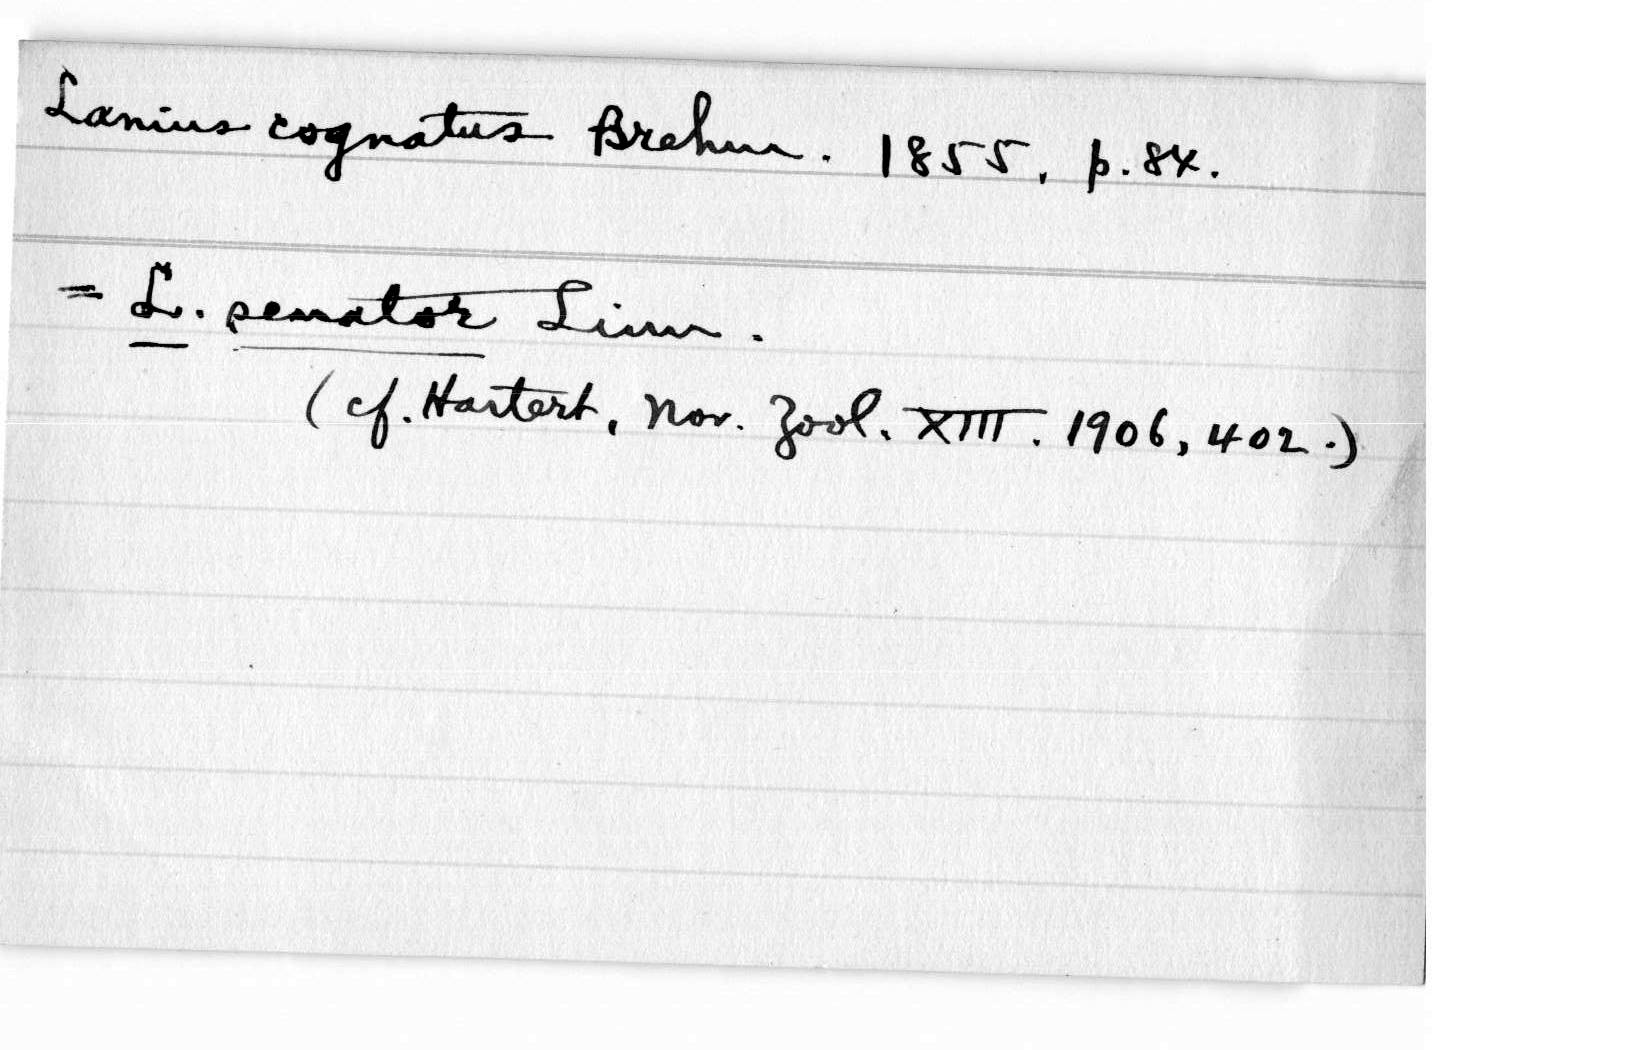 Lanius cognatus Brehm. 1855, p. 84.
= L. senator Linn.
(cf. Hartert, Nov. Zool. XIII. 1906, 402.)